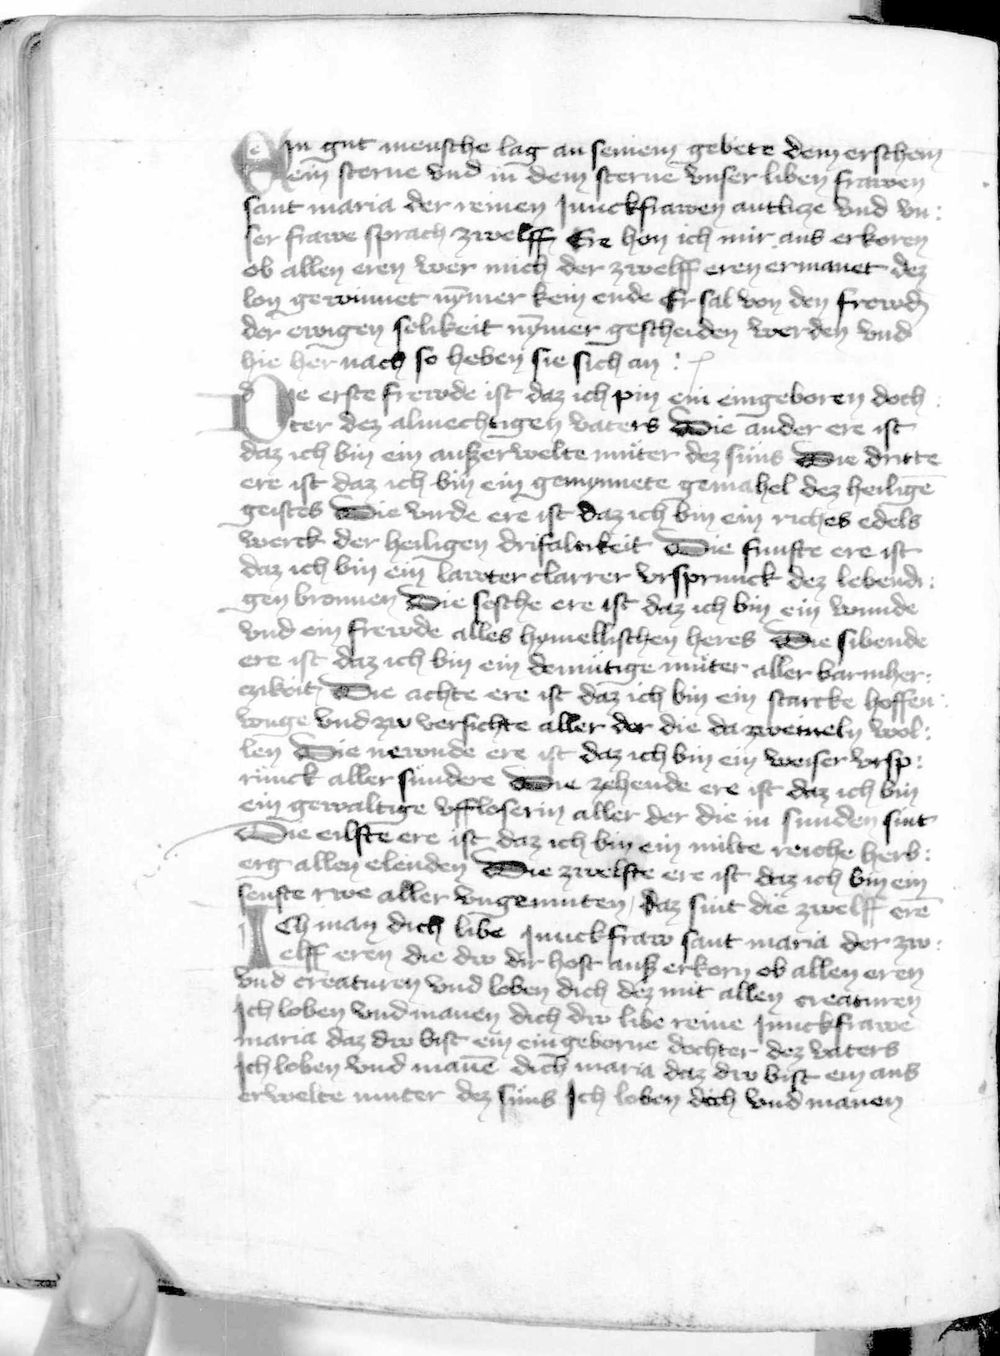 Ein gut mensche lag an seinem gebete dem erschein
ein sterne vnd in dem sterne vnser liben frawen
sant maria der reinen Junckfrawen antlicze vnd vn:
ser frawe sprach zwelff Ere hon ich mir aus erkoren
ob allen eren wer mich der zwelff eren ermanet dez
lon gewinnet nymer kein ende Er sal von den frewdn
der ewigen selikeit nymer gescheiden werden vnd
hie her nach so heben sie sich an :
Die erste frewde ist daz ich pin ein eingeboren doch
ter dez almechtigen vaters Die ander ere ist
daz ich bin ein außerwelte muter dez suns Die dritte
ere ist daz ich bin ein gemynnete gemahel dez heilige
geistes Die virde ere ist daz ich bin ein riches edels
werck der heiligen drifaltikeit Die funfte ere ist
daz ich bin ein lawter clarrer vrsprunck dez lebendi:
gen bronnen Die sesche ere ist daz ich bin ein wunde
vnd ein frewde alles hymellischen heres Die sibende
ere ist daz ich bin ein demutige muter aller barmher:
czikeit Die achte ere ist daz ich bin ein starcke hoffen:
vnge vnd zw versichte aller der die da zweiueln wol:
len Die newnde ere ist daz ich bin ein weiser vrsp:
rinck aller sundere Die zehende ere ist daz ich bin
ein gewaltige vffloserin aller der die in sunden sint
Die eilfte ere ist daz ich bin ein milte reiche herb:
erg allen elenden Die zwelfte ere ist daz ich bin ein
senfte rwe aller vngemuten Daz sint die zwelff ere
ICh man dich libe Junckfraw sant maria der zw:
elff eren die dw dir host auß erkorn ob allen eren
vnd creaturen vnd loben dich dez mit allen creaturen
Ich loben vnd manen dich dw libe reine Junckfrawe
maria daz dw bist ein eingeborne dochter dez vaters
Ich loben vnd mane dich maria daz dw bist ein aus
erwelte muter dez suns Ich loben dich vnd manen